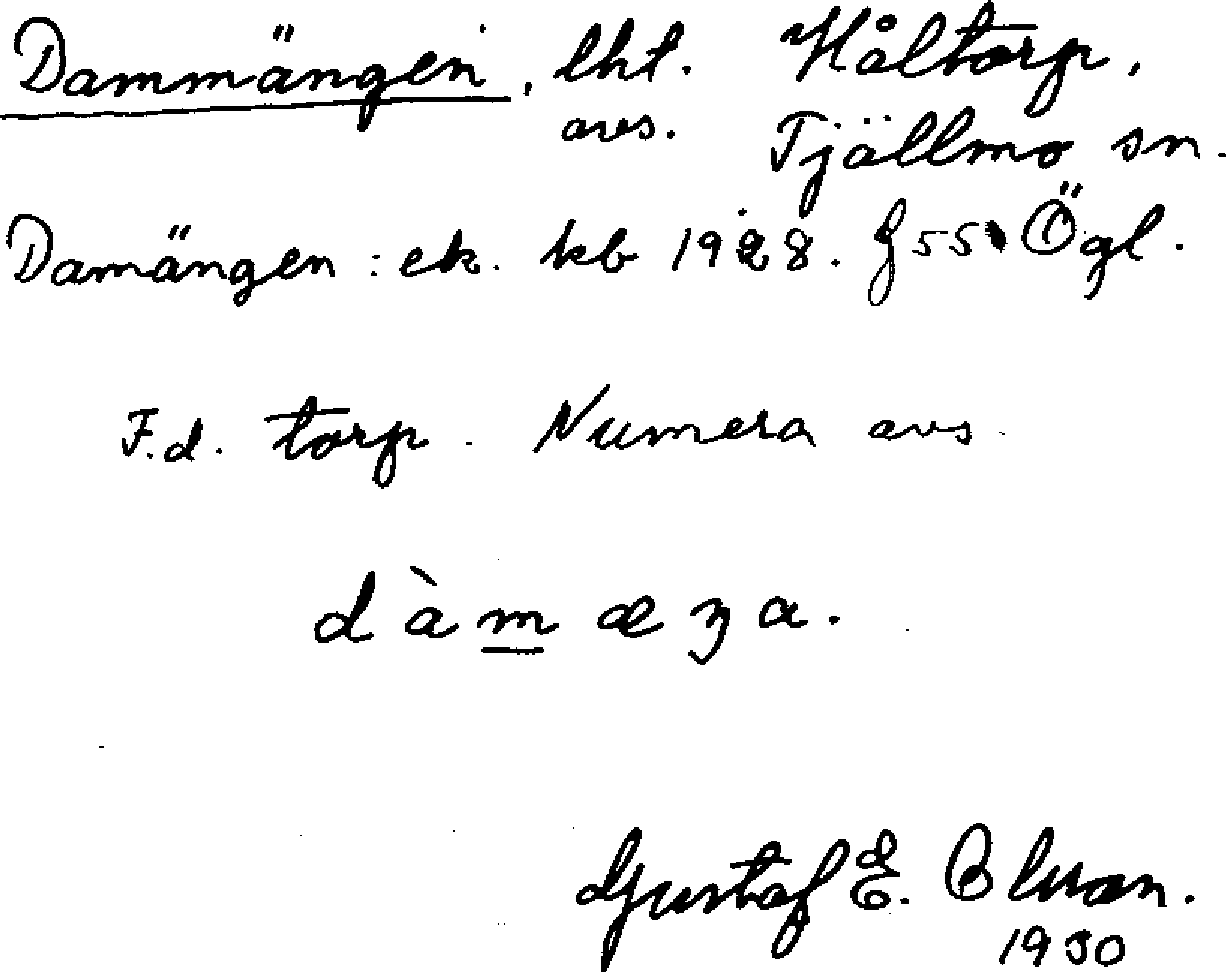 Dammängen, lht. Håltorp,
avs. Tjällmo sn.
Damängen: ek. kb 1928. f 55 Ögl.
F.d. torp. Numera avs.
dàmæŋa.
Gustaf E. Olsson.
1930